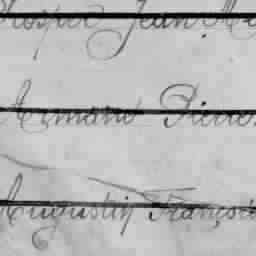 Prosper Jean M
Armand Pierre
Augustin François